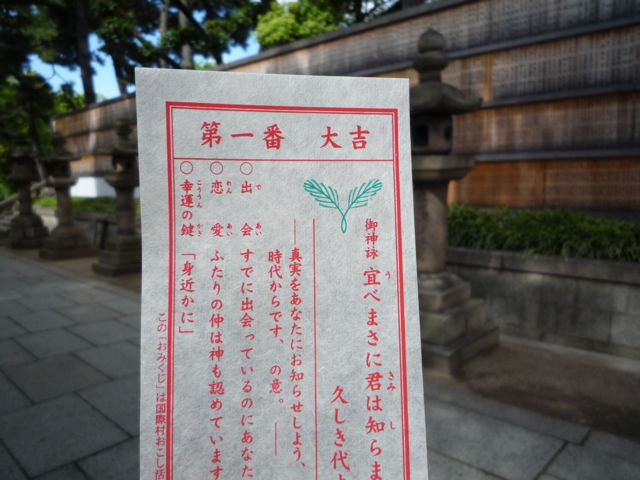 第一番 大吉
御神詠
宜べまさに君は知らま
久しき代よ
――真実をあなたにお知らせしよう、
時代からです、 の意。――
○出会 すでに出会っているのにあなた
○恋愛 ふたりの仲は神も認めています
○幸運の鍵 「身近かに」
この「おみくじ」は国際村おこし活